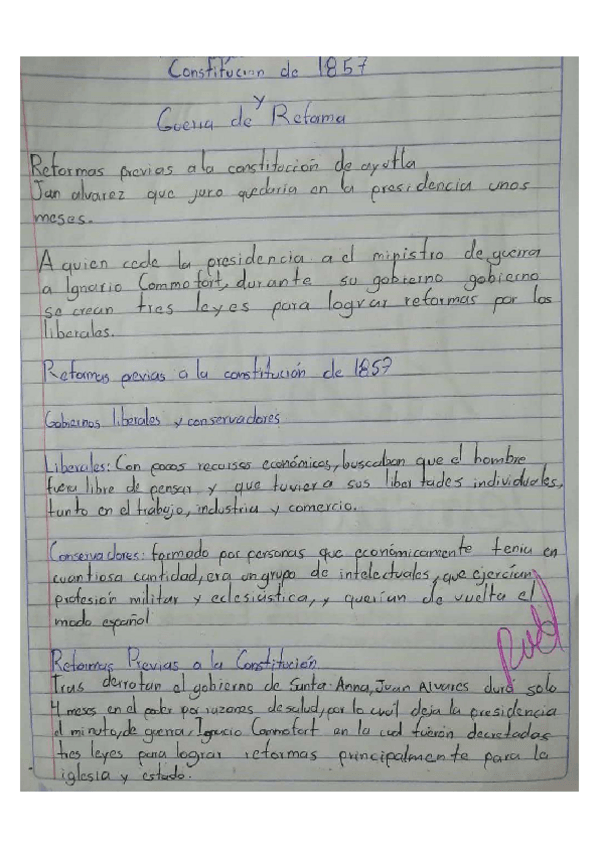 Constitución de 1857
y
Guerra de Reforma
Reformas previas a la constitución de ayotla
Jan alvarez que juro quedaria en la presidencia unos
meses.
A quien cede la presidencia a el ministro de guerra
a Ignacio Commofort, durante su gobierno gobierno
se crean tres leyes para lograr reformas por los
liberales.
Reformas previas a la constitución de 1857
Gobiernos liberales y conservadores
Liberales: Con pocos recursos económicos, buscaban que el hombre
fuera libre de pensar y que tuviera sus libertades individuales,
tanto en el trabajo, industria y comercio.
Conservadores: formado por personas que económicamente tenia en
cuantiosa cantidad, era un grupo de intelectuales, que ejercian
profesión militar y eclesiástica, y querían de vuelta el
modo español
Reformas Previas a la Constitución
Tras derrotan al gobierno de Santa-Anna, Juan Alvares dura solo
4 meses en el poder por razones de salud, por lo cuál deja la presidencia
el minuto, de guerra, Ignacio Commofort en la cual fuerón decretadas
tres leyes para lograr reformas principalmente para la
iglesia y estado.